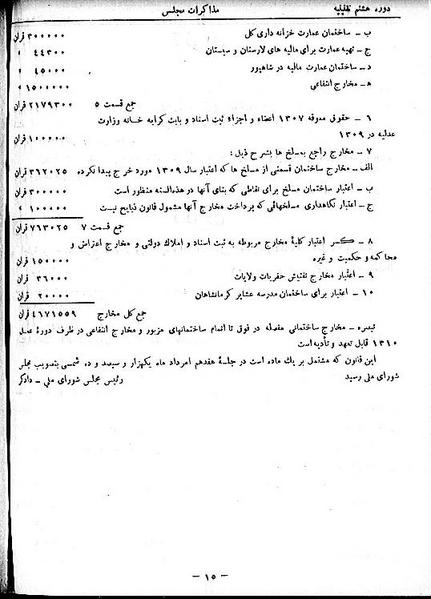 دوره هشتم تقنینیه
مذاکرات مجلس
ب – ساختمان عمارت خزانه داری کل ۳۰۰۰۰۰ قران
ج – تهیه عمارت برای مالیه های لارستان و سیستان ۴۴۳۰۰ »
د – ساختمان عمارت مالیه در شاهپور ۴۵۰۰۰ »
ه – مخارج انتفاعی ۱۵۰۰۰۰۰ »
جمع قسمت ۵ ۲۱۷۹۳۰۰ قران
۶ – حقوق معوقه ۱۳۰۷ اعضاء و اجزاء ثبت اسناد و بابت کرایه خانه وزارت
عدلیه در ۱۳۰۹ ۱۰۰۰۰۰ قران
۷ – مخارج راجع به مسلخ ها بشرح ذیل :
الف – مخارج ساختمان قسمتی از مسلخ ها که اعتبار سال ۱۳۰۹ مورد خرج پیدا نکرده ۳۶۲۰۲۵ قران
ب – اعتبار ساختمان مسلخ برای نقاطی که بنای آنها در هذه السنه منظور است ۳۰۰۰۰۰ قران
ج – اعتبار نگاهداری مسلخهائی که پرداخت مخارج آنها مشمول قانون ذبایح نیست ۱۰۰۰۰۰ »
جمع قسمت ۷ ۷۶۳۰۲۵ قران
۸ – کسر اعتبار کلیه مخارج مربوطه به ثبت اسناد و املاک دولتی و مخارج اعتراض و
محاکمه و حکمیت و غیره ۱۵۰۰۰۰ قران
۹ – اعتبار مخارج تفتیش حفریات ولایات ۳۶۰۰۰ قران
۱۰ – اعتبار برای ساختمان مدرسه عشایر کرمانشاهان ۲۰۰۰۰ قران
جمع کل مخارج ۴۶۷۱۵۵۹ قران
تبصره – مخارج ساختمانی مفصله در فوق تا اتمام ساختمانهای مزبور و مخارج انتفاعی در ظرف دورهٔ عمل
۱۳۱۰ قابل تعهد و تأدیه است
این قانون که مشتمل بر یک ماده است در جلسهٔ هفدهم امرداد ماه یکهزار و سیصد و ده شمسی بتصویب مجلس
شورای ملی رسید رئیس مجلس شورای ملی – دادگر
– ۱۵ –